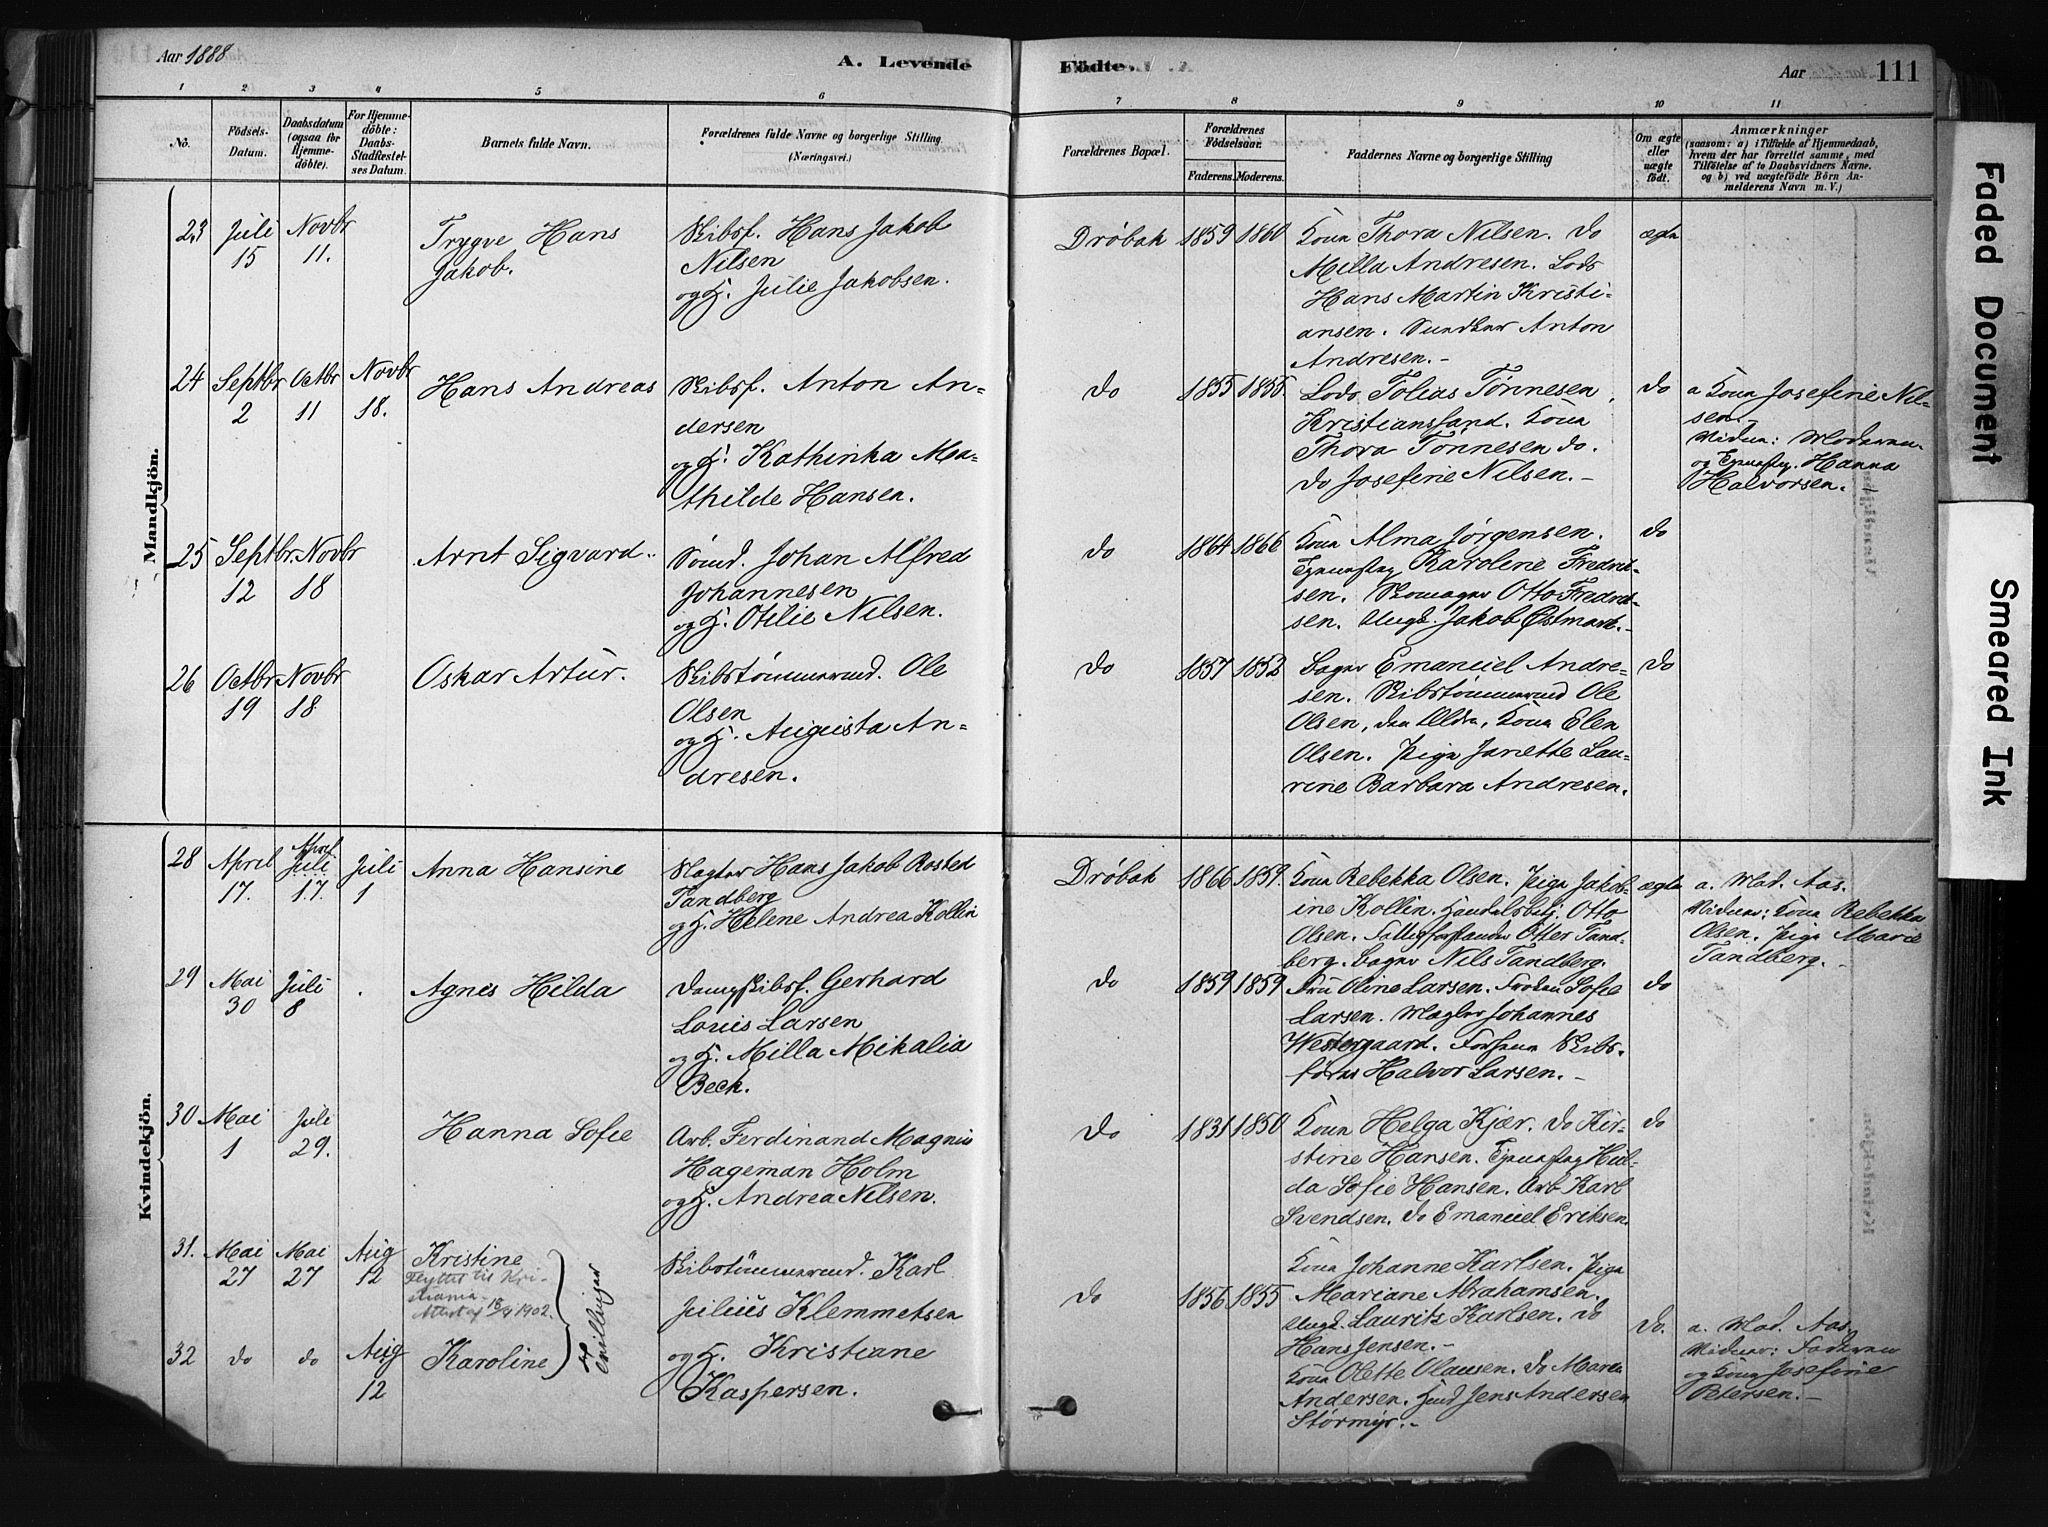 Aar 1888
A. Levende
Födte.
Aar
111
1 2 3 4 5 6 7 8 9 10 11
No.
Födsels-
Datum.
Daabsdatum
(ogsaa for
Hjemme-
döbte).
For Hjemme-
döbte:
Daabs-
Stadfæstel-
ses Datum.
Barnets fulde Navn.
Forældrenes fulde Navne og borgerlige Stilling.
(Næringsvei.)
Forældrenes Bopæl.
Forældrenes
Födselsaar.
Faderens.
Moderens.
Faddernes Navne og borgerlige Stilling
Om ægte
eller
uægte
födt.
Anmærkninger
(saasom: a) i Tilfælde af Hjemmedaab,
hvem der har forrettet samme, med
Tilföielse af to Daabsvidners Navne.
og b) ved uægtefödte Börn An-
melderens Navn m. V.)
Mandkjön.
23
Juli
15
Novbr
11.
Trygve Hans
Jakob.
Skibsf. Hans Jakob
Nilsen
og H. Julie Jakobsen.
Drøbak
1859
1860
Kona Thora Nilsen. do
Milla Andresen. Lods
Hans Martin Kristi-
ansen. Anton
Andresen.-
ægte
24
Septbr
2
Octbr
11
Novbr
18.
Hans Andreas
Skibsf. Anton An-
dersen
og H. Kathinka Ma-
thilde Hansen.
do
1855
1855.
Lods Tobias Tønnesen,
Kristianssand. Kona
Thora Tønnesen do.
do Josefine Nilsen.-
do
a Kona Josefine Nil-
sen.-
Vidner: Moderen
og Hanna
Halvorsen.-
25
Septbr.
12
Novbr
18
Arnt Sigvard.
Sømd. Johan Alfred
Johannesen
og H. Otilie Nilsen.
do
1864
1866
Kona Alma Jørgensen.
Karoline Fredrik-
sen. Skomager Otto Fredrik-
sen. Ungk. Jakob Østmark.-
do
26
Octbr
19
Novbr
18
Oskar Artur.
Skibstømmermd. Ole
Olsen
og H. Augusta An-
dresen.
do
1857
1852
Bager Emanuel Andre-
sen. Skibstømmermd Ole
Olsen, den Eldre, Kona Elen
Olsen. Pige Janette Lau-
rine Barbara Andresen.
do
Kvindekjön.
28
April
17.
April
Juli
17.
Juli
1
Anna Hansine
Slagter Hans Jakob Rosted
Tandberg
og H. Helene Andrea Kollin
Drøbak
1866
1859.
Kona Rebekka Olsen. Pige Jakob-
ine Kollin. Handelsbetj. Otto
Olsen. Fattigforstander Otter Tand-
berg. Bager Nils Tandberg.
ægte
a. Mad. Aas.
Vidner: Kona Rebekka
Olsen. Pige Marie
Tandberg.-
29
Mai
30
Juli
8
Agnes Hilda
Dampskibsf. Gerhard
Louis Larsen
og H. Milla Mikalia
Beck.
do
1859
1859
Fru Oline Larsen. Frøken Sofie
Larsen. Mægler Johannes
Westergaard. Forhenv. Skibs-
fører Halvor Larsen.-
do
30
Mai
1
Juli
29.
Hanna Sofie
Arb. Ferdinand Magnus
Hageman Holm
og H. Andrea Nilsen.
do
1831
1850
Kona Helga Kjær. do Kir-
stine Hansen. Hul-
da Sofie Hansen. Arb Karl
Svendsen. do Emanuel Eriksen.
do
31.
Mai
27
Mai
27
Aug
12
Kristine
Flyttet til Kri-
stiania.
Attest af 18/4 1902.
Tvillinger
Skibstømmermd. Karl
Julius Klemmetsen
og H. Kristiane
Kaspersen.
do
1856
1855
Kona Johanne Karlsen. Pige
Mariane Abrahamsen.
Ungk. Lauritz Karlsen. do
Hans Jensen.-
32
do
do
Aug
12
Karoline
Kona Olette Olausen. do Maren
Andersen. Jens Andersen
Størmyr.-
do.
a. Mad. Aas.
Vidner: Faderen
og Kona Josefine
Petersen.-
Faded Document
Smeared Ink